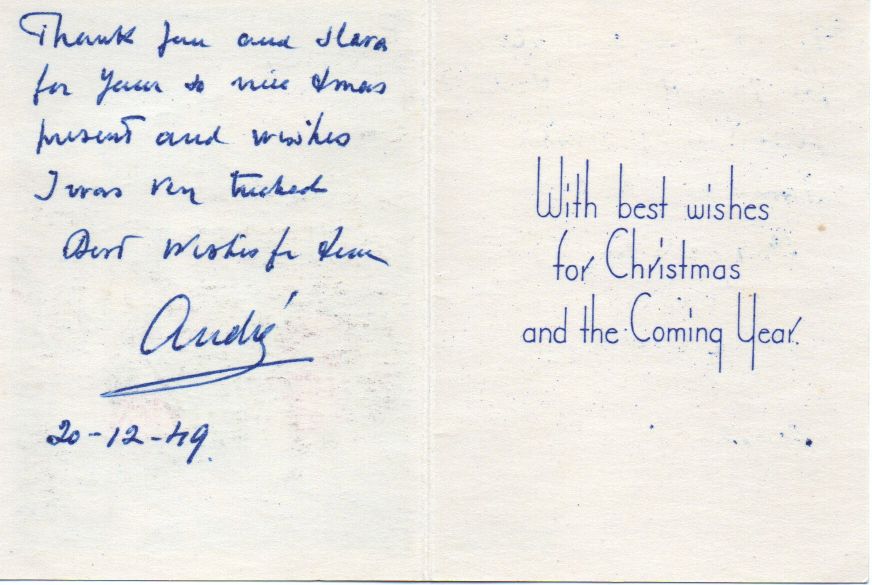 Thank you and Clara
for your so nice Xmas
present and wishes
I was very touched
Best Wishes for
André
20-12-49.
With best wishes
for Christmas
and the Coming Year.